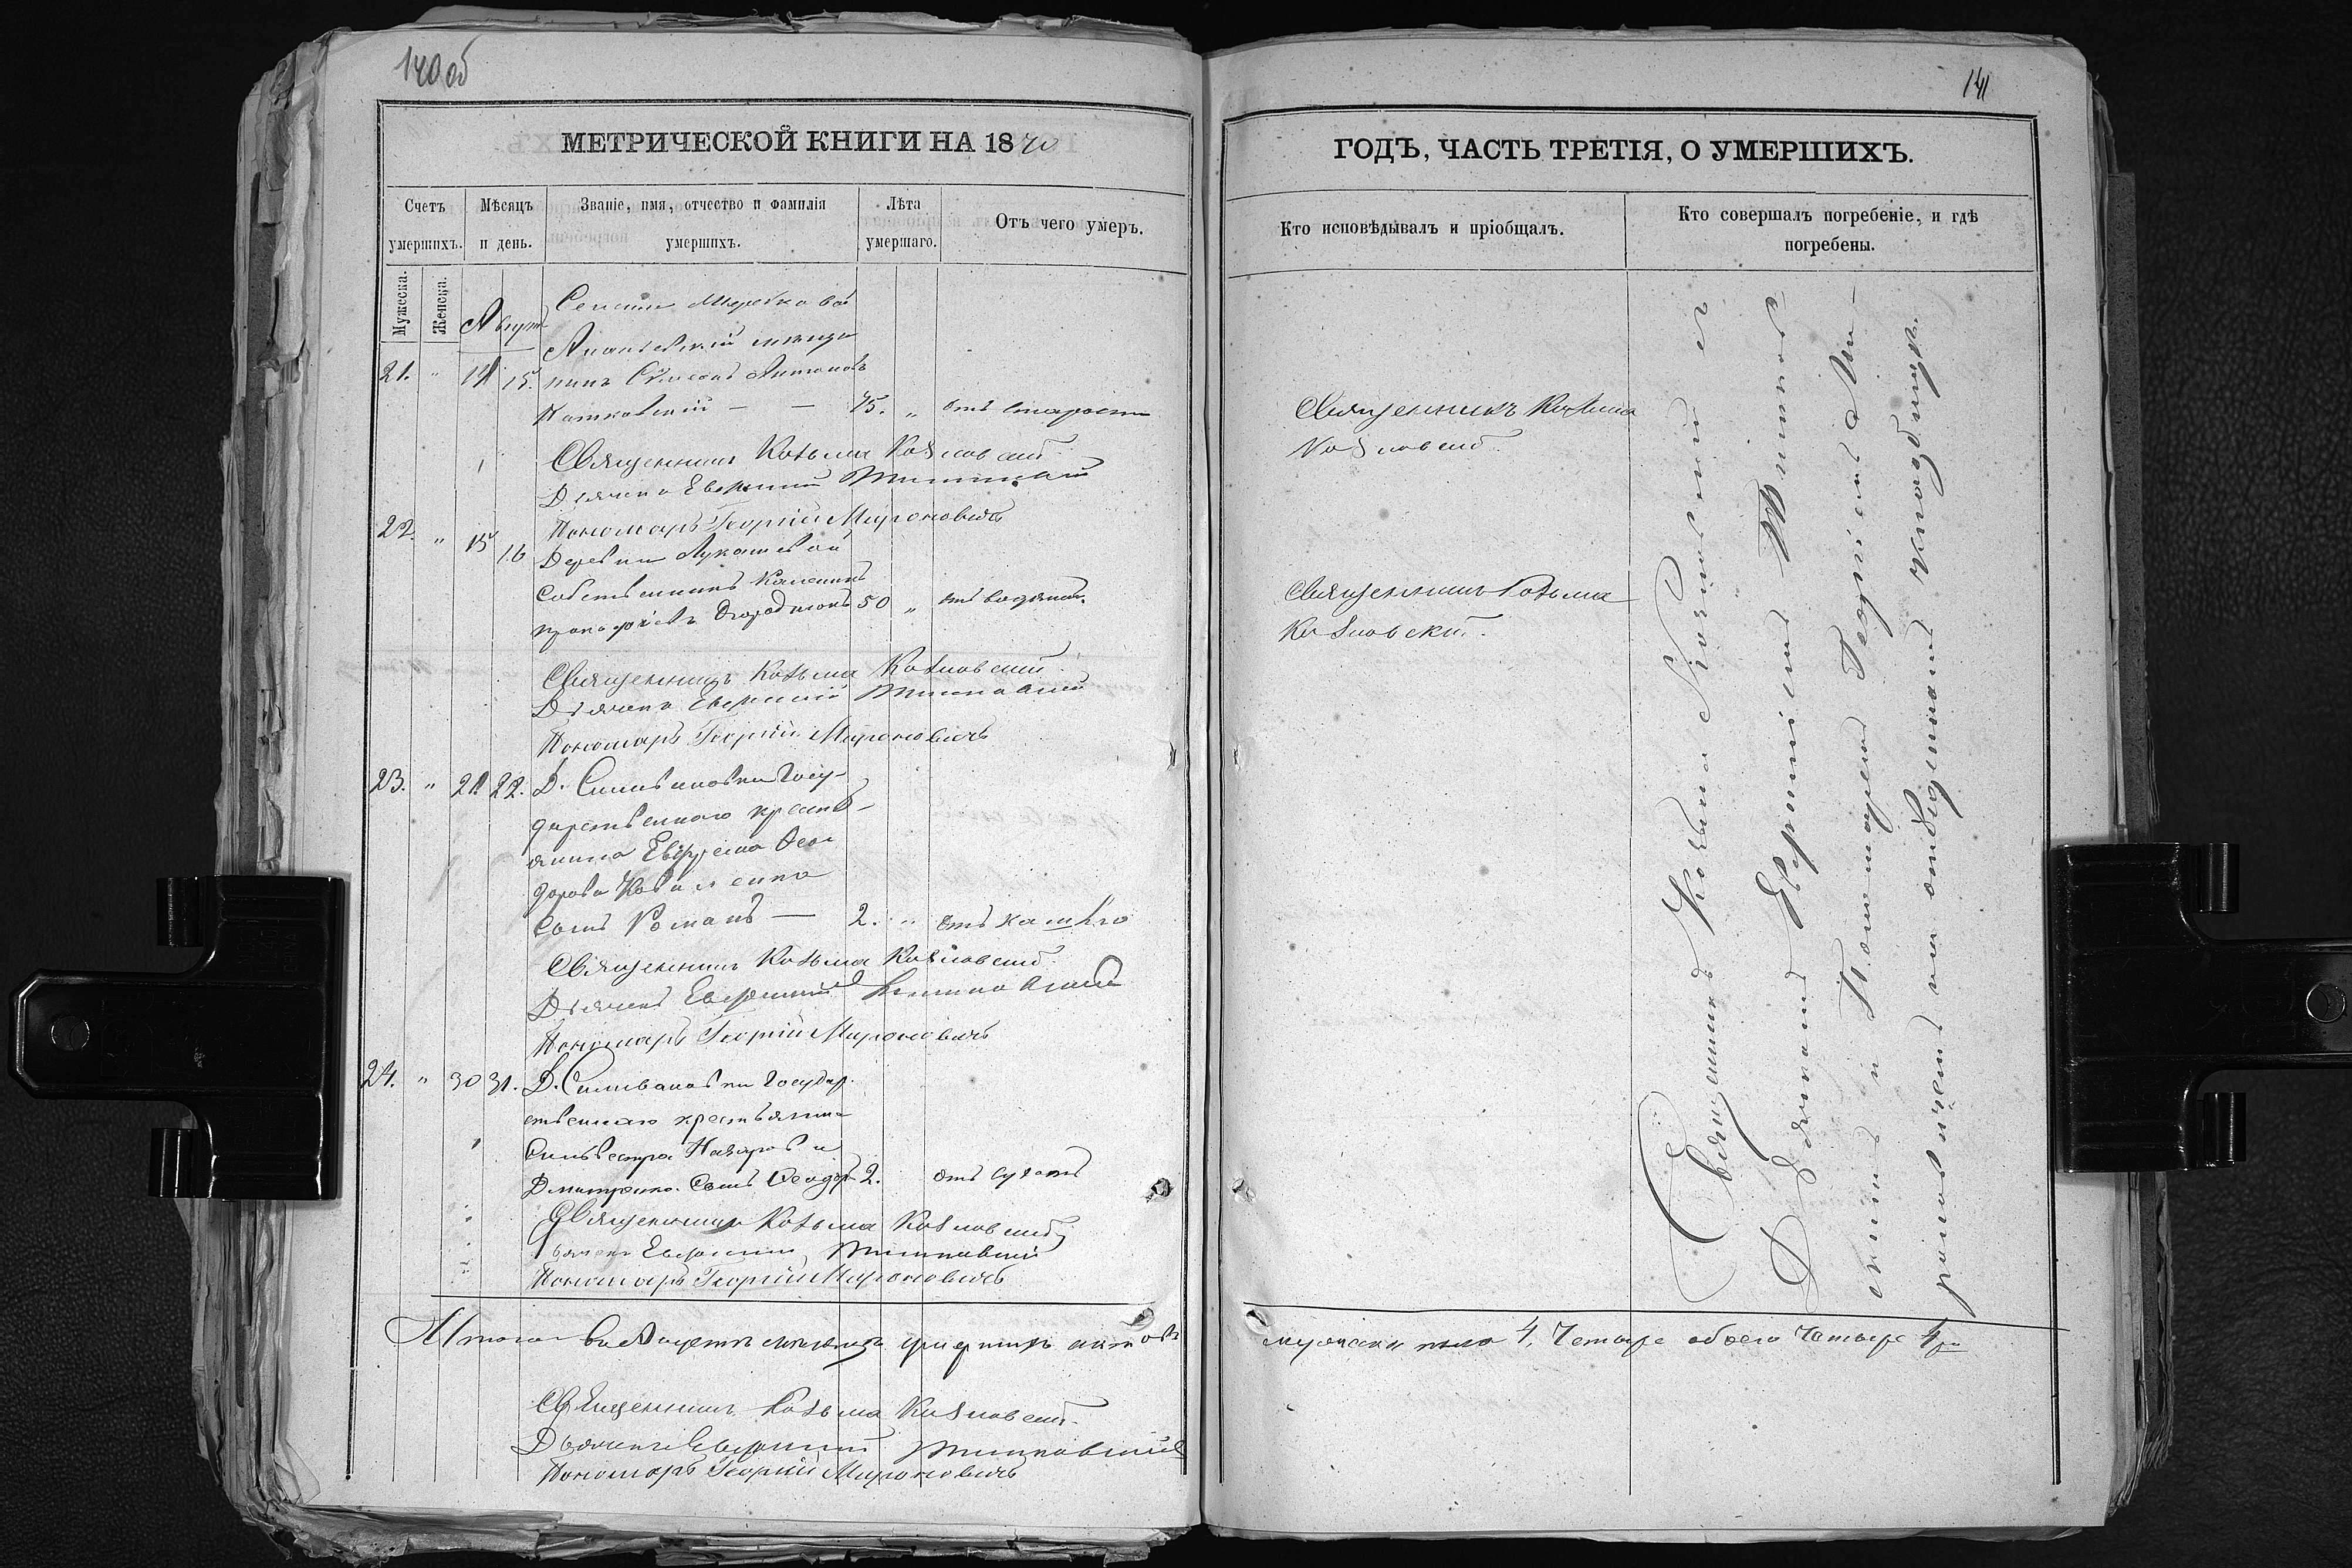 140об
МЕТРИЧЕСКОЙ КНИГИ НА 1870
Счетъ умершихъ.
Мѣсяцъ и день.
Званіе, имя, отчество и фамилія умершихъ.
Лѣта умершаго.
Отъ чего умеръ.
Мужеска.
Женска.
Августъ
Ананьевскій мѣща
21. " 14 15. нинъ Антоновъ
— — 75. " отъ старости
Священникъ Козьма Козловскій
Дьячекъ Евфимій
Пономарь Георгій Мироновичъ
22. " 15 16 Деревни Лукашевой
Собственникъ
50 " отъ водяной.
Священникъ Козьма Козловскій
Дьячекъ Евфимій
Пономарь Георгій Мироновичъ
23. " 21 22. Д. Госу-
дарственнаго кресть-
янина Ефрема Фео
дорова Коваленка
сынъ Романъ — 2. " отъ кашлю
Священникъ Козьма Козловскій
Дьячекъ Евфимій
Пономарь Георгій Мироновичъ
24. " 30 31. Д. Государ
ственнаго крестьянина
Сильвестра Назарова
Дмитренко сынъ Феодоръ 2. отъ сухотъ
Священникъ Козьма Козловскій
Дьячекъ Евфимій
Пономарь Георгій Мироновичъ
Итого въ Августѣ мѣсяцѣ умершихъ
Священникъ Козьма Козловскій
Дьячекъ Евфимій
Пономарь Георгій Мироновичъ
141
ГОДЪ, ЧАСТЬ ТРЕТІЯ, О УМЕРШИХЪ.
Кто исповѣдывалъ и пріобщалъ.
Кто совершалъ погребеніе, и гдѣ погребены.
Священникъ Козьма
Козловскій.
Священникъ Козьма
Козловскій.
Священникъ Козьма Козловскій съ
Дьячкомъ Евфиміемъ
скимъ и Пономаремъ Георгіемъ Ми-
роновичемъ на отведенномъ кладбищѣ.
мужеска пола 4, четыре обоего четыре 4